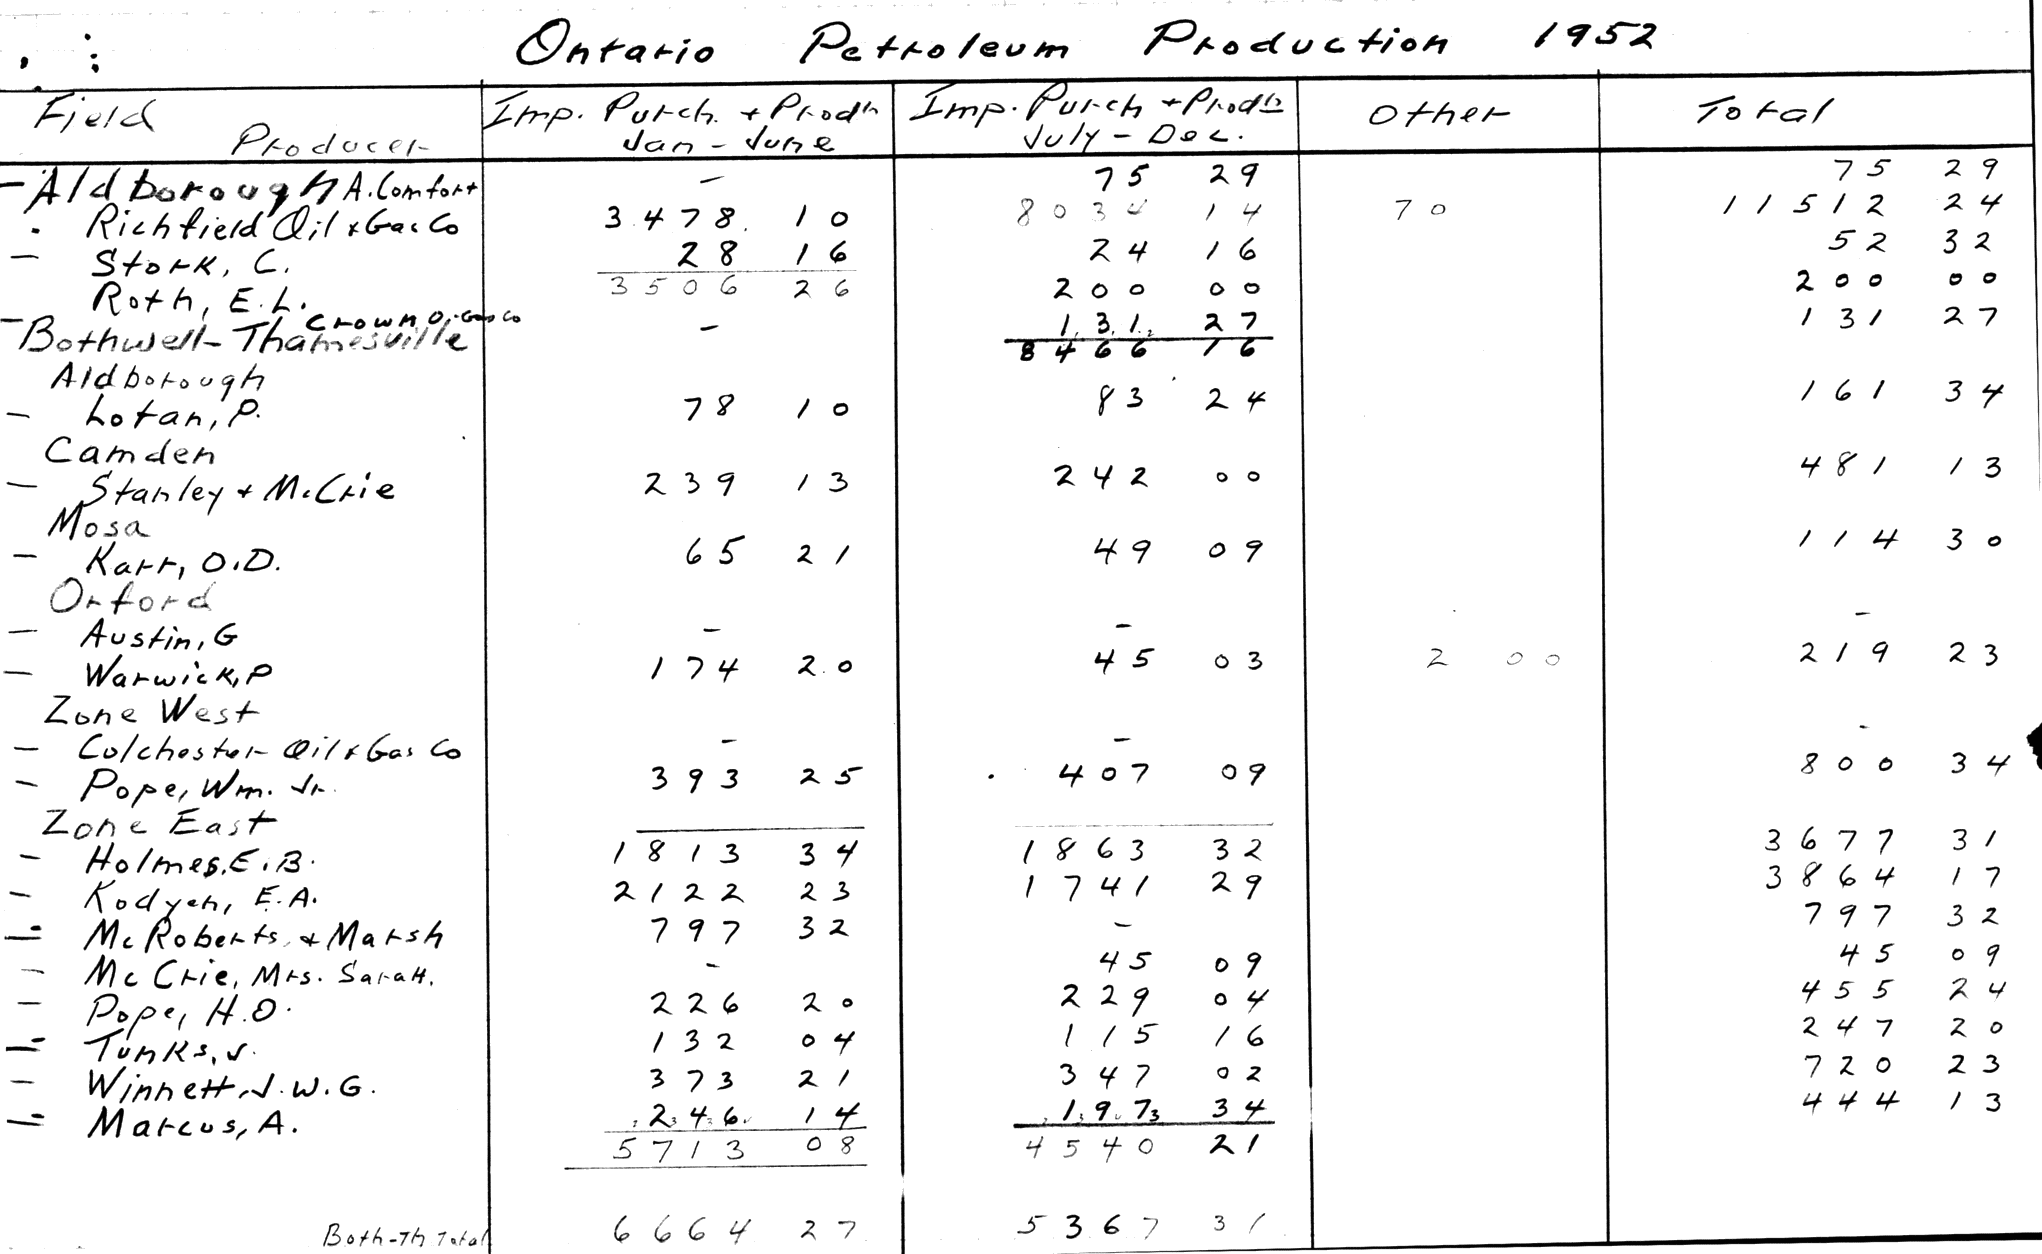 Ontario Petroleum Production 1952
Field Producer Imp. Purch. + Prod'n Jan - June Imp. Purch + Prod'n July - Dec. Other Total
- Aldborough A. Comfort - 75 29 75 29
. Richfield Oil & Gas Co 3478 10 8034 14 70 11512 24
- Stork, C. 28 16 24 16 52 32
3506 26
Roth, E.L. 200 00 200 00
- Crown O. Gas Co - 131 27 131 27
Bothwell-Thamesville 8466 16
Aldborough
- Lotan, P. 78 10 83 24 161 34
Camden
- Stanley + McCrie 239 13 242 00 481 13
Mosa
- Karr, O.D. 65 21 49 09 114 30
Orford
- Austin, G - - -
- Warwick, P 174 20 45 03 2 00 219 23
Zone West
- Colchester Oil & Gas Co - - -
- Pope, Wm. Jr. 393 25 407 09 800 34
Zone East
- Holmes, E.B. 1813 34 1863 32 3677 31
- Kodyen, E.A. 2122 23 1741 29 3864 17
- McRoberts + Marsh 797 32 - 797 32
- McCrie, Mrs. Sarah. - 45 09 45 09
- Pope, H.O. 226 20 229 04 455 24
- Tunks, J. 132 04 115 16 247 20
- Winnett, J.W.G. 373 21 347 02 720 23
- Marcus, A. 246 14 197 34 444 13
5713 08 4540 21
Both-Th Total 6664 27 5367 31